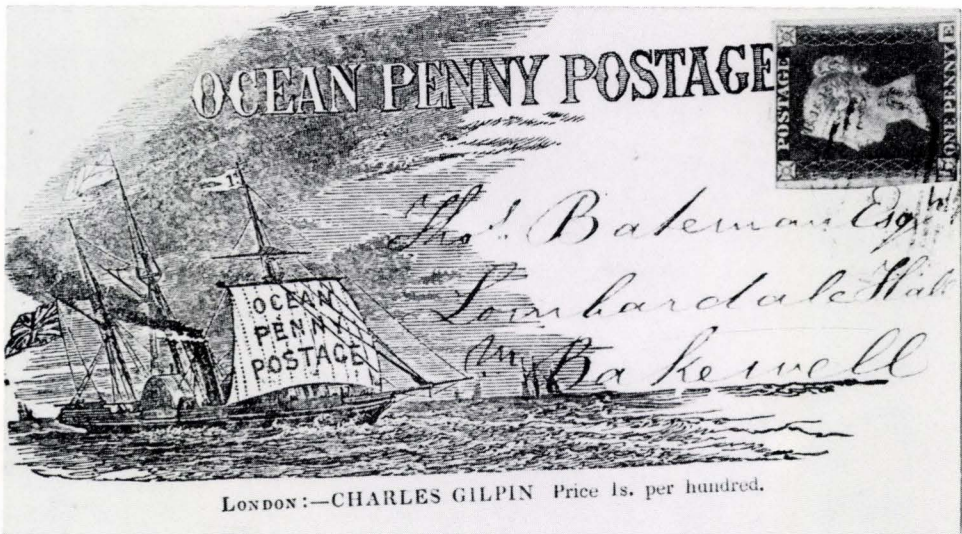 OCEAN PENNY POSTAGE
POSTAGE
ONE PENNY
E
1
OCEAN
PENNY
POSTAGE
Thos. Bateman Esqr
Lombardale Hall
Bakewell
LONDON:—CHARLES GILPIN Price 1s. per hundred.